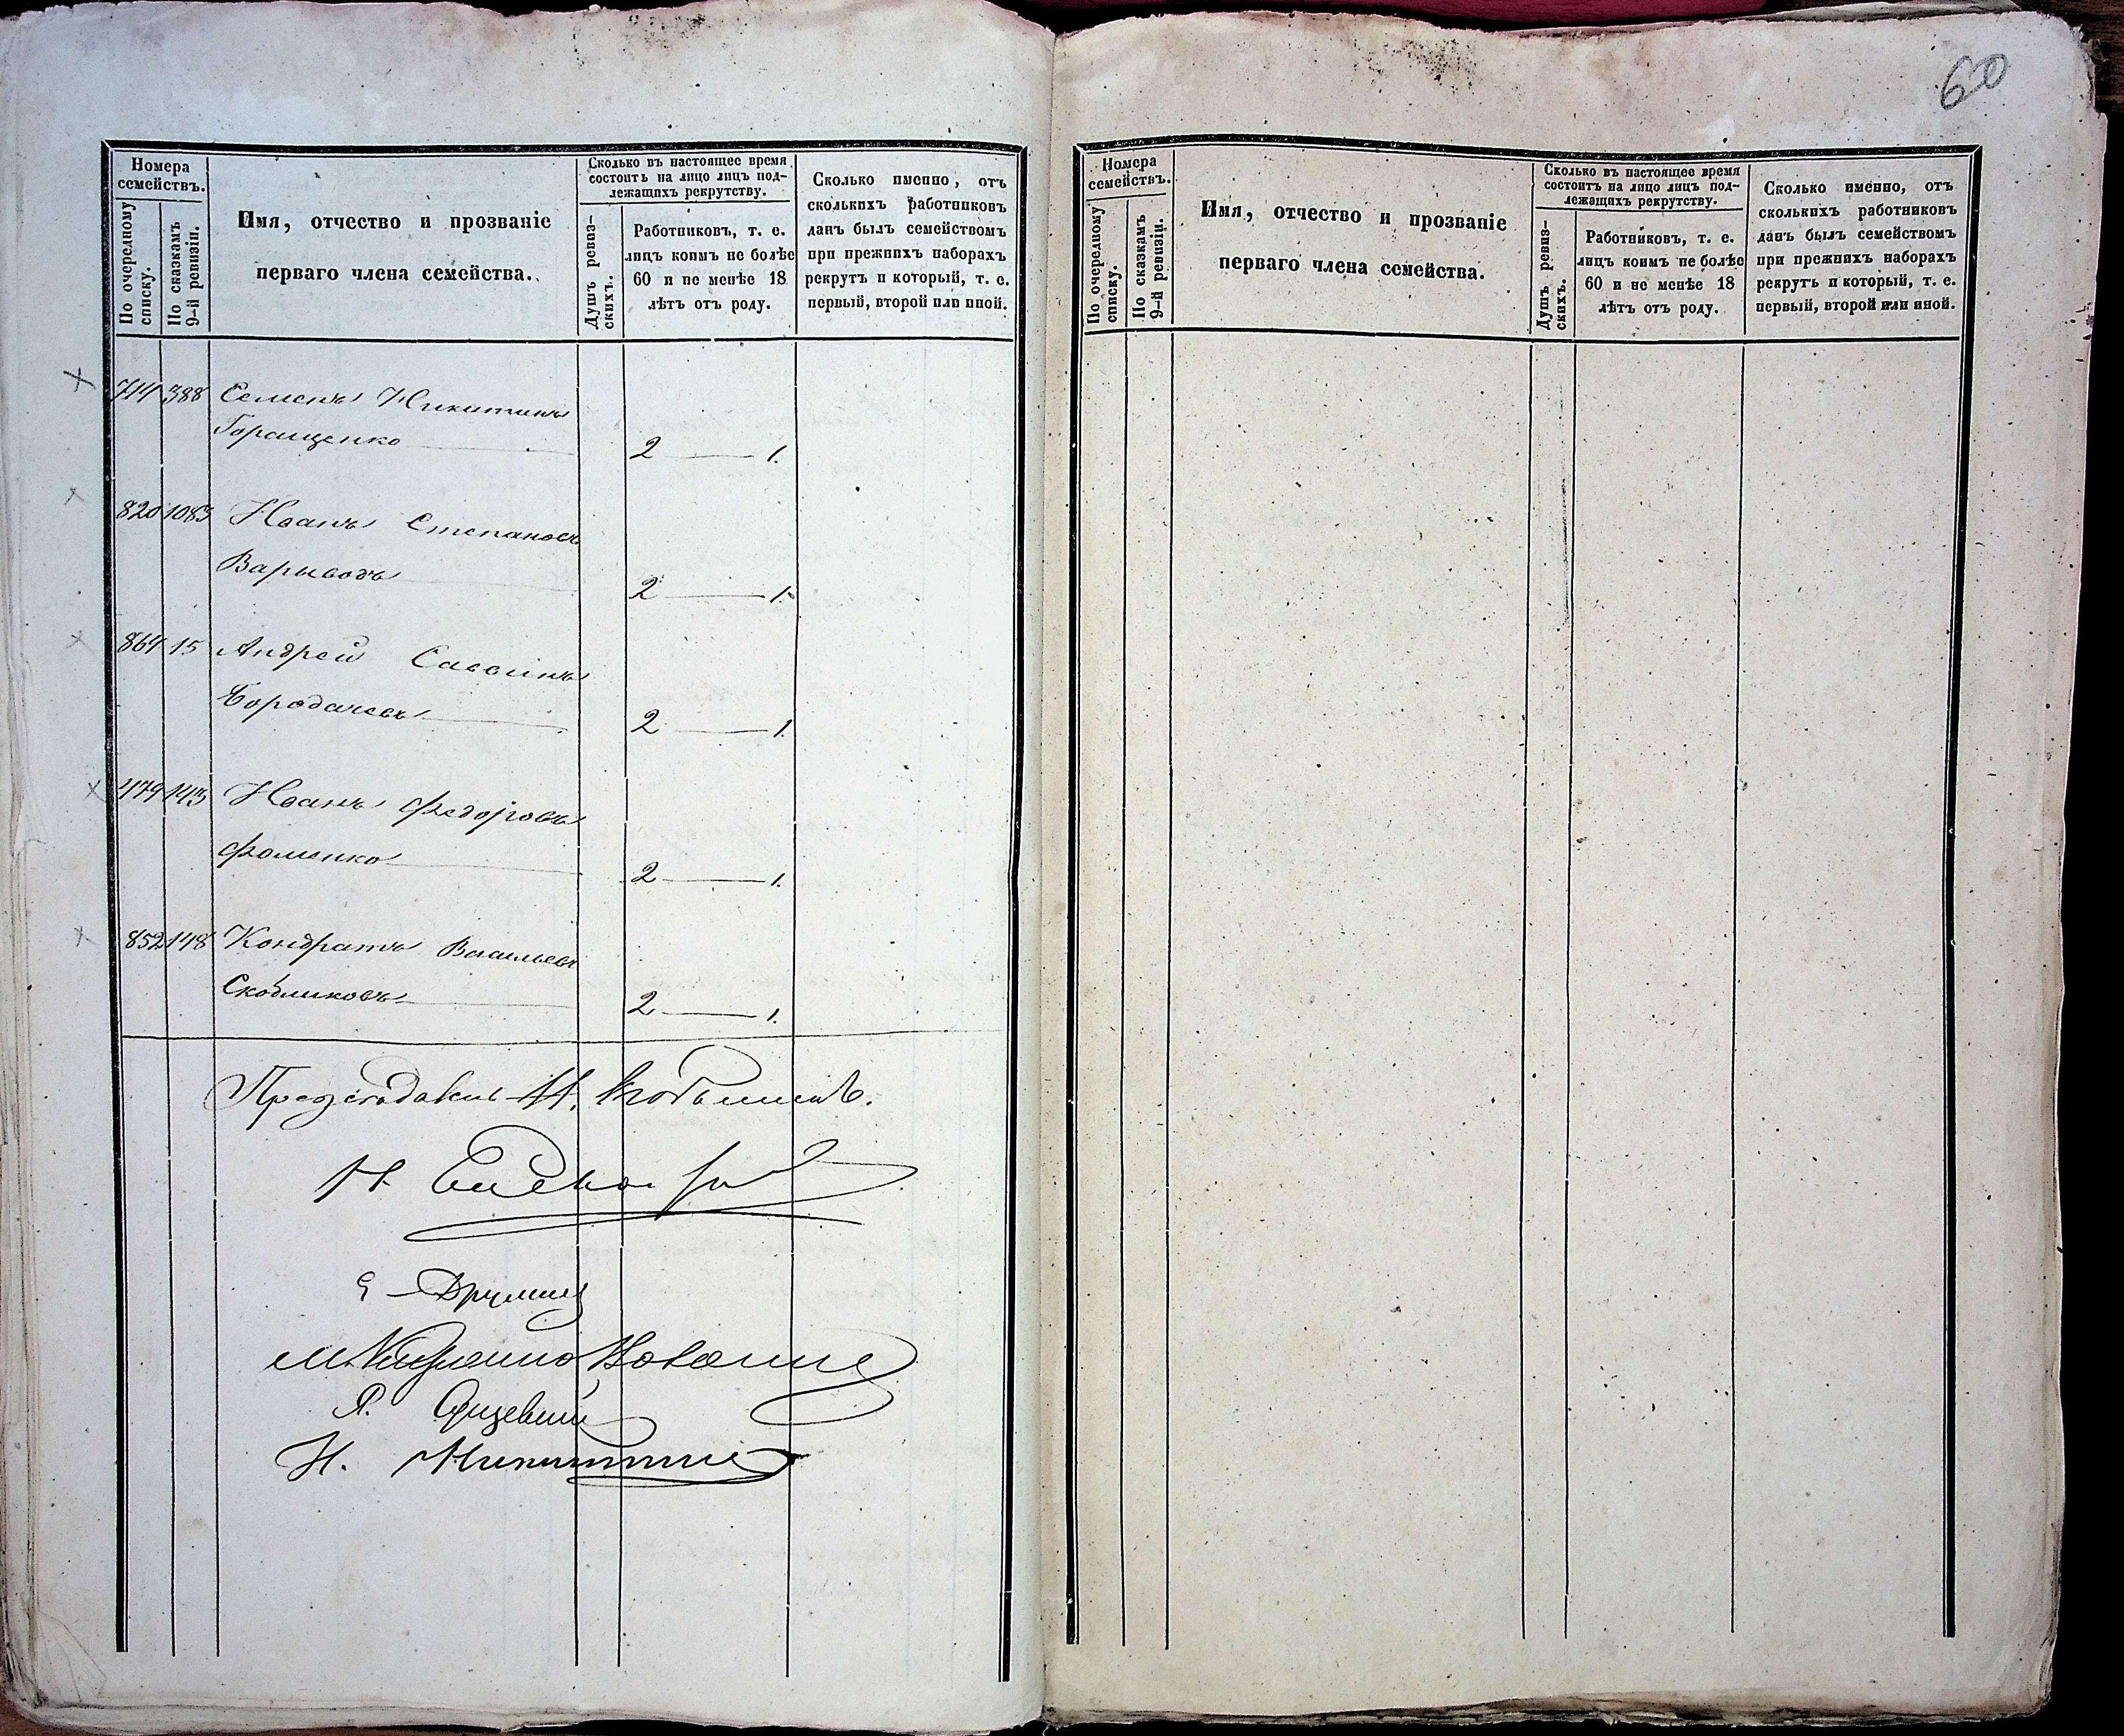 60
Номера
семействъ.
По очередному
списку.
По сказкамъ
9-й ревизіи.
Имя, отчество и прозваніе
перваго члена семейства.
Сколько въ настоящее время
состоитъ на лицо лицъ под-
лежащихъ рекрутству.
Душъ ревиз-
скихъ.
Работниковъ, т. е.
лицъ коимъ не болѣе
60 и не менѣе 18
лѣтъ отъ роду.
Сколько именно, отъ
сколькихъ работниковъ
данъ былъ семействомъ
при прежнихъ наборахъ
рекрутъ и который, т. е.
первый, второй или иной.
714 388 Семенъ Никитинъ
Горащенко
2 — 1.
820 1083 Иванъ Степановъ
Варыводъ
2 — 1.
864 15 Андрей Саввинъ
Бородачевъ
2 — 1.
479 143 Иванъ Федоровъ
Фоменко
2 — 1.
852 148 Кондратъ Васильевъ
Скобликовъ
2 — 1.
Н. Никитинъ
Номера
семействъ.
По очередному
списку.
По сказкамъ
9-й ревизіи.
Имя, отчество и прозваніе
перваго члена семейства.
Сколько въ настоящее время
состоитъ на лицо лицъ под-
лежащихъ рекрутству.
Душъ ревиз-
скихъ.
Работниковъ, т. е.
лицъ коимъ не болѣе
60 и не менѣе 18
лѣтъ отъ роду.
Сколько именно, отъ
сколькихъ работниковъ
данъ былъ семействомъ
при прежнихъ наборахъ
рекрутъ и который, т. е.
первый, второй или иной.